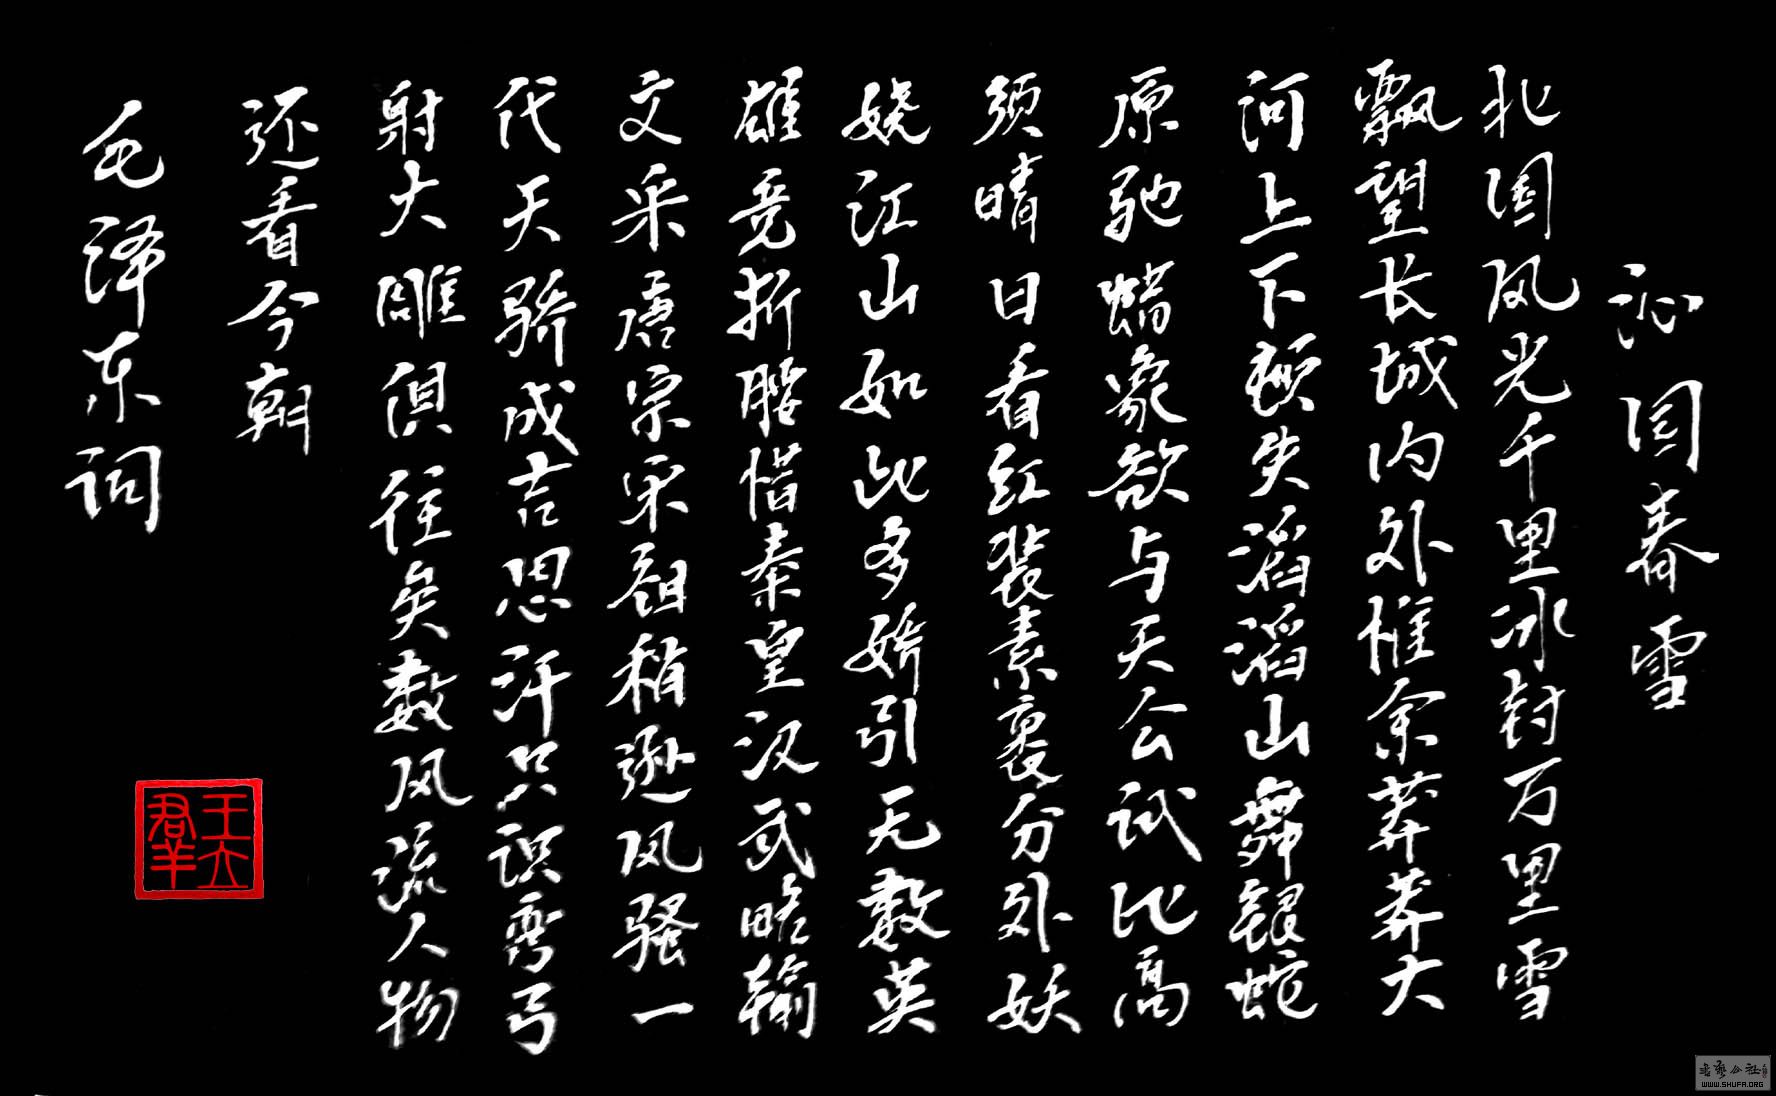 沁园春雪
北国风光千里冰封万里雪
飘望长城内外惟余莽莽大
河上下顿失滔滔山舞银蛇
原驰蜡象欲与天公试比高
须晴日看红装素裹分外妖
娆江山如此多娇引无数英
雄竞折腰惜秦皇汉武略输
文采唐宗宋祖稍逊风骚一
代天骄成吉思汗只识弯弓
射大雕俱往矣数风流人物
还看今朝
毛泽东词
王立羣
书艺公社
WWW.SHUFA.ORG